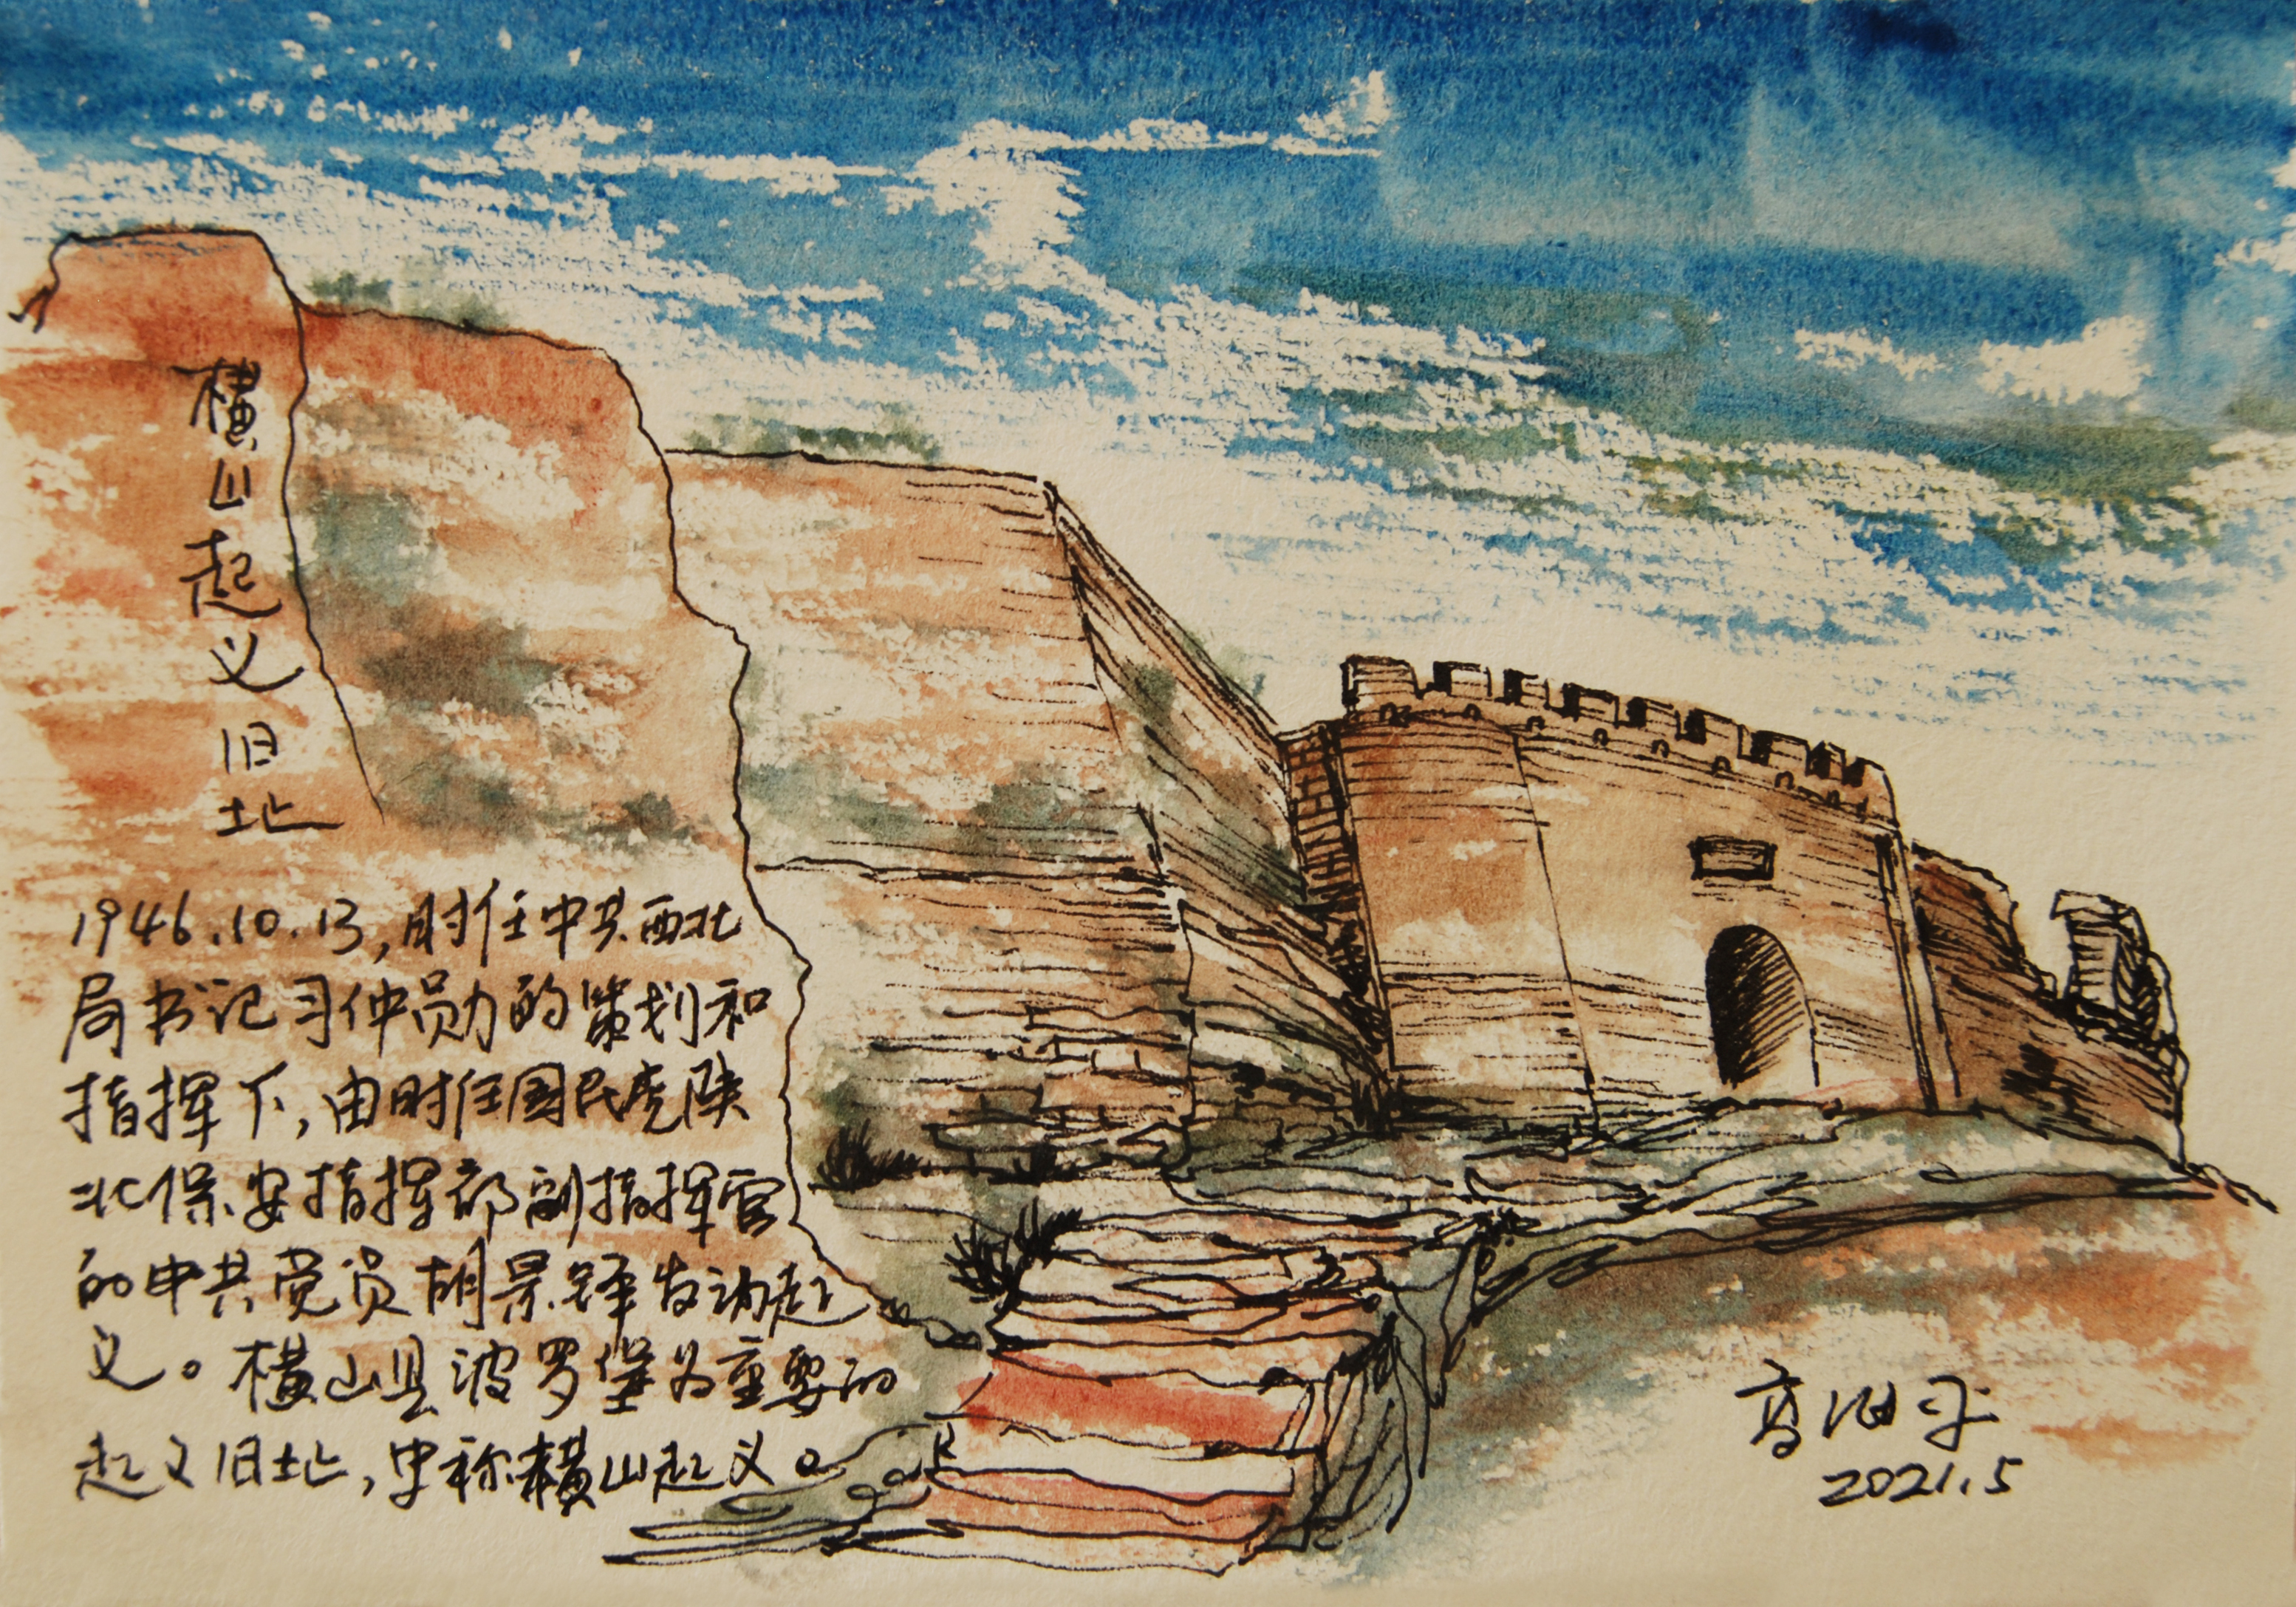 横山起义旧址
1946.10.13,时任中共西北
局书记习仲勋的策划和
指挥下,由时任国民党陕
北保安指挥部副指挥官
的中共党员胡景铎发动起
义。横山县波罗堡为重要的
起义旧址,史称横山起义。
2021.5